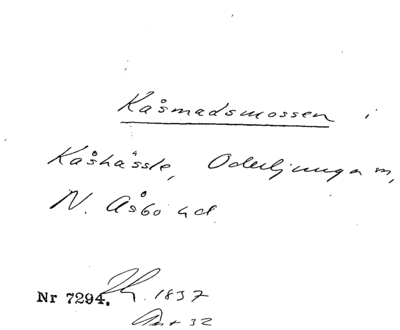 Kåsmadsmossen i
Kåshässle, Oderljunga m,
N. Åsbo hd.
Nr 7294. 1837
32